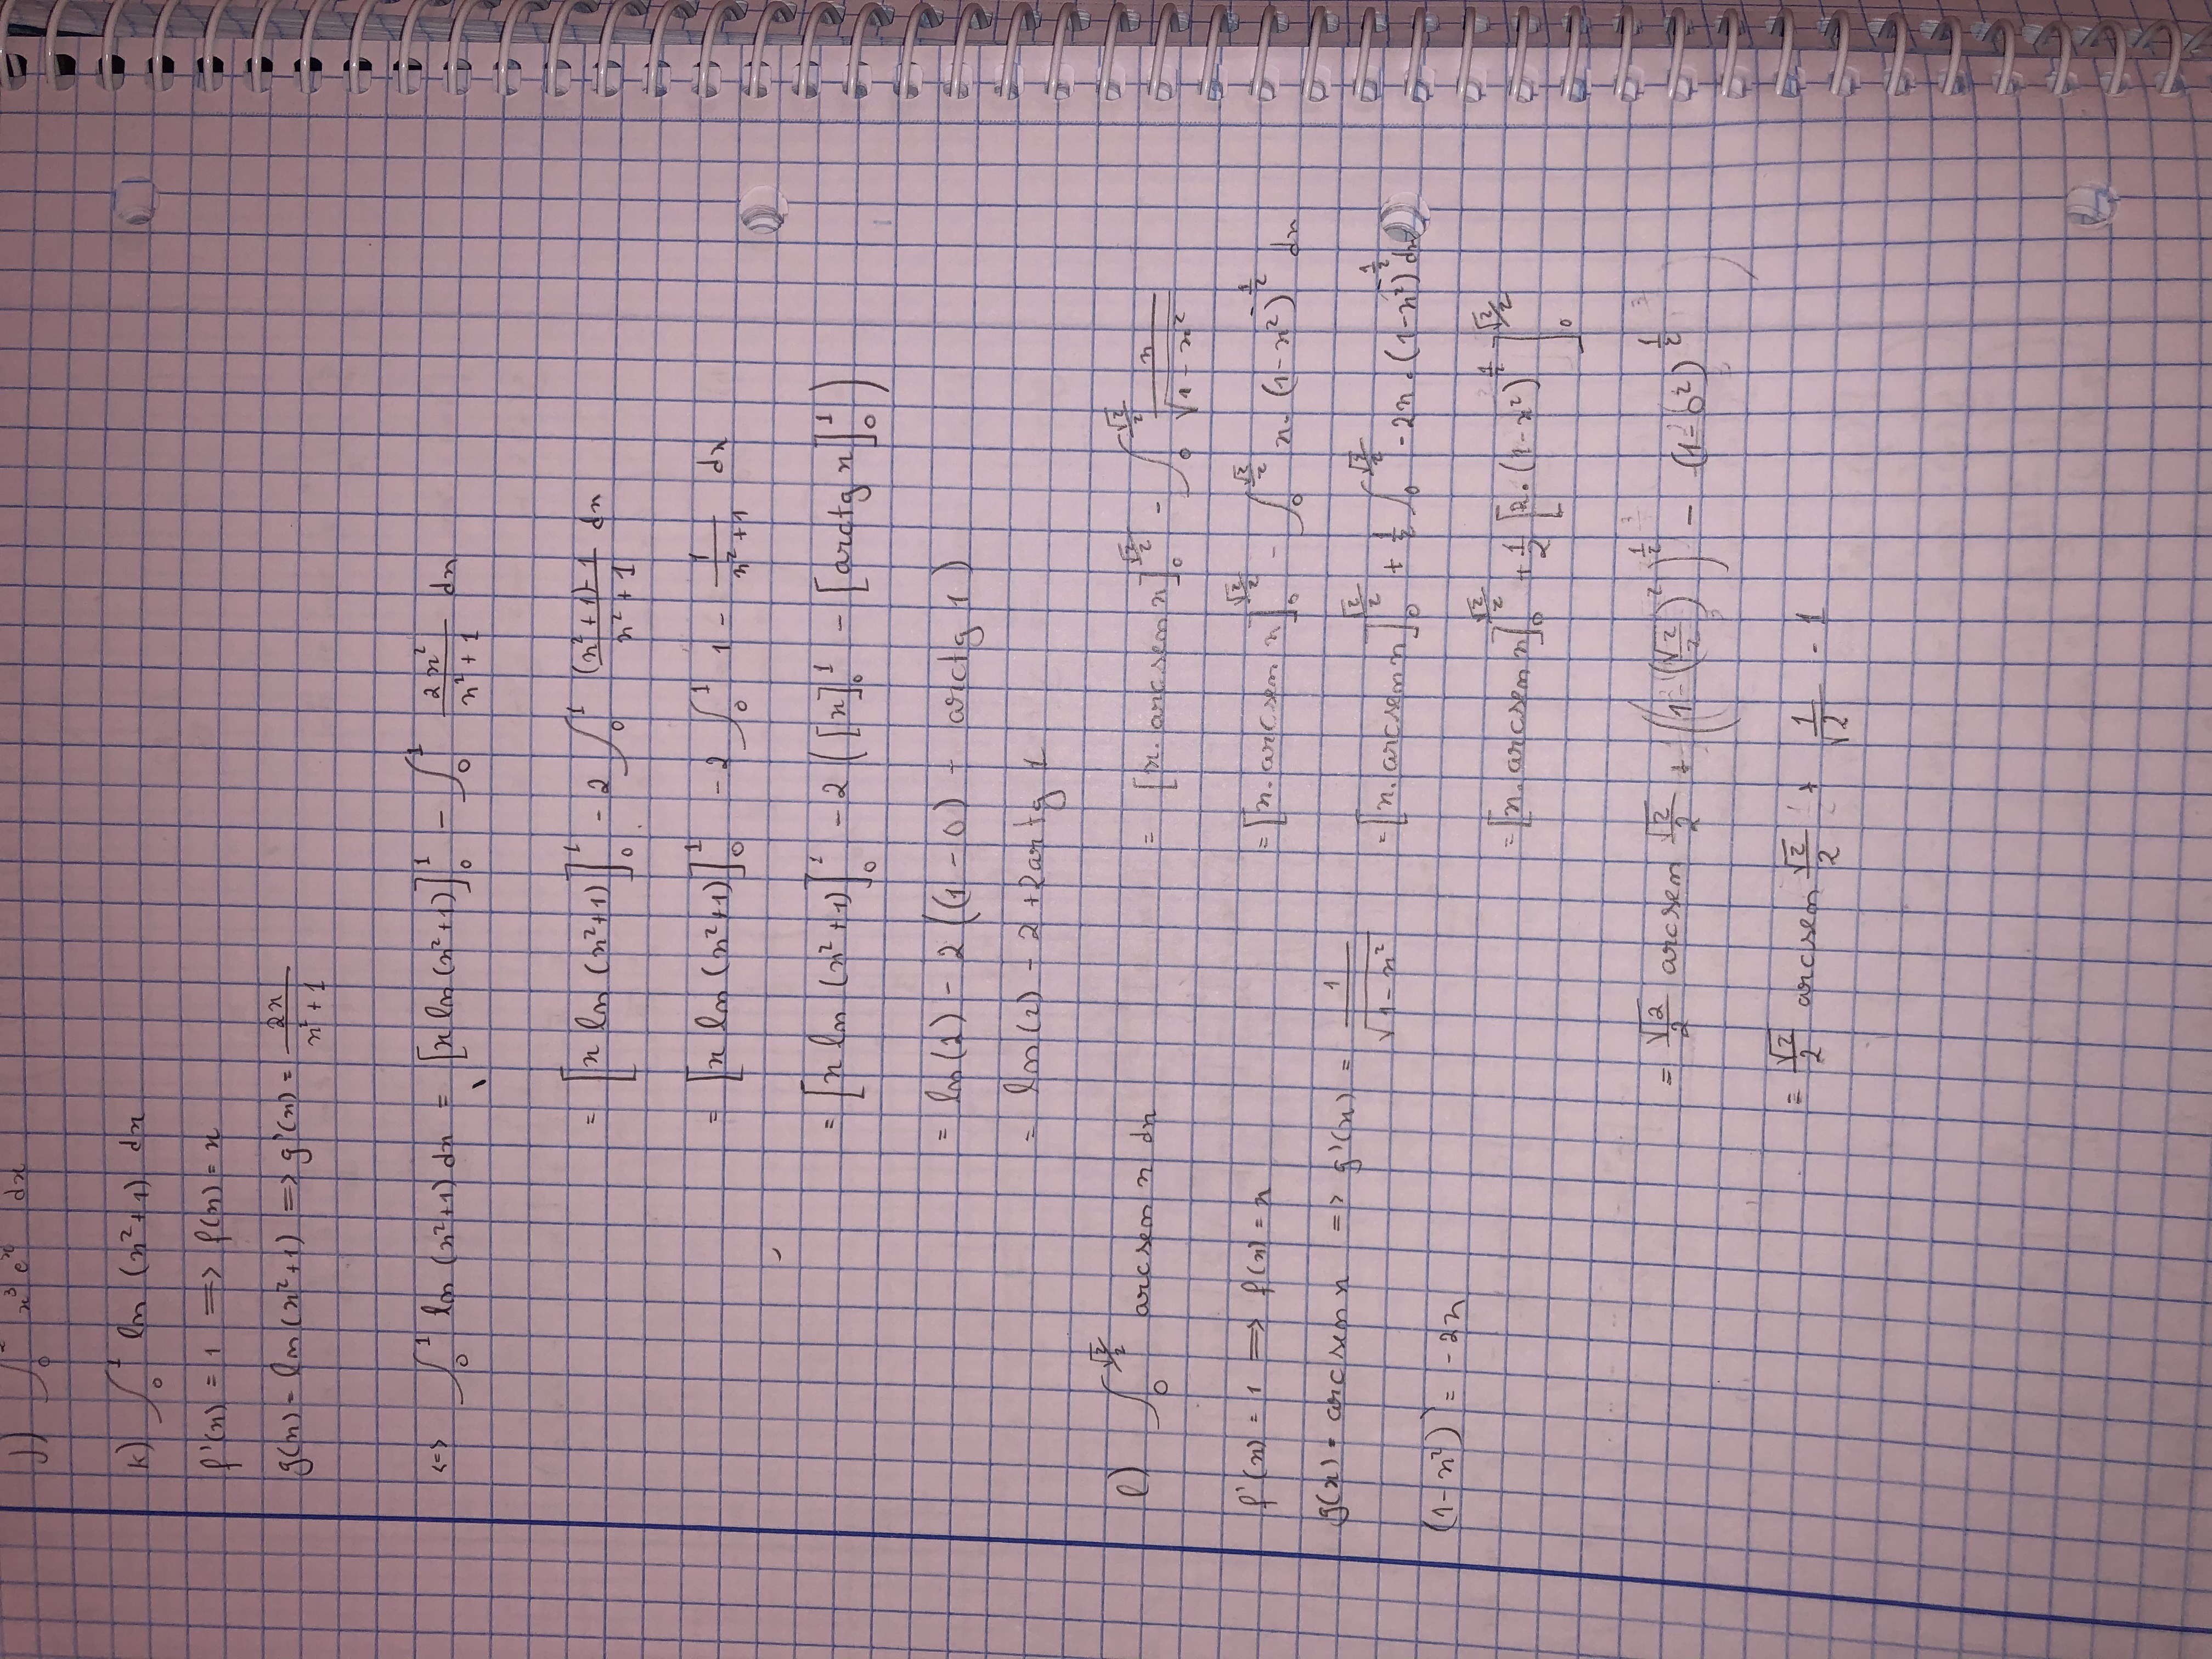 j) ∫₀² x³ eˣ dx
k) ∫₀¹ ln (x²+1) dx
f'(x) = 1 ⟹ f(x) = x
g(x) = ln (x²+1) ⟹ g'(x) = 2x/(x²+1)
<=> ∫₀¹ ln (x²+1) dx = [x ln (x²+1)]₀¹ - ∫₀¹ 2x²/(x²+1) dx
= [x ln (x²+1)]₀¹ - 2 ∫₀¹ ((x²+1)-1)/(x²+1) dx
= [x ln (x²+1)]₀¹ - 2 ∫₀¹ 1 - 1/(x²+1) dx
= [x ln (x²+1)]₀¹ - 2 ([x]₀¹ - [arctg x]₀¹)
= ln(2) - 2 ((1 - 0) - arctg 1)
= ln(2) - 2 + 2artg 1
l) ∫₀^(√2/2) arcsen x dx
f'(x) = 1 ⟹ f(x) = x
g(x) = arcsen x => g'(x) = 1/√(1-x²)
(1-x²)' = -2x
= [x. arcsen x]₀^(√2/2) - ∫₀^(√2/2) x/√(1-x²)
= [x. arcsen x]₀^(√2/2) - ∫₀^(√2/2) x. (1-x²)^(-1/2) dx
= [x. arcsen x]₀^(√2/2) + 1/2 ∫₀^(√2/2) -2x . (1-x²)^(-1/2) dx
= [x. arcsen x]₀^(√2/2) + 1/2 [2. (1-x²)^(1/2)]₀^(√2/2)
= √2/2 arcsen √2/2 + ((1-(√2/2)²)^(1/2) - (1-0²)^(1/2))
= √2/2 arcsen √2/2 + 1/√2 - 1